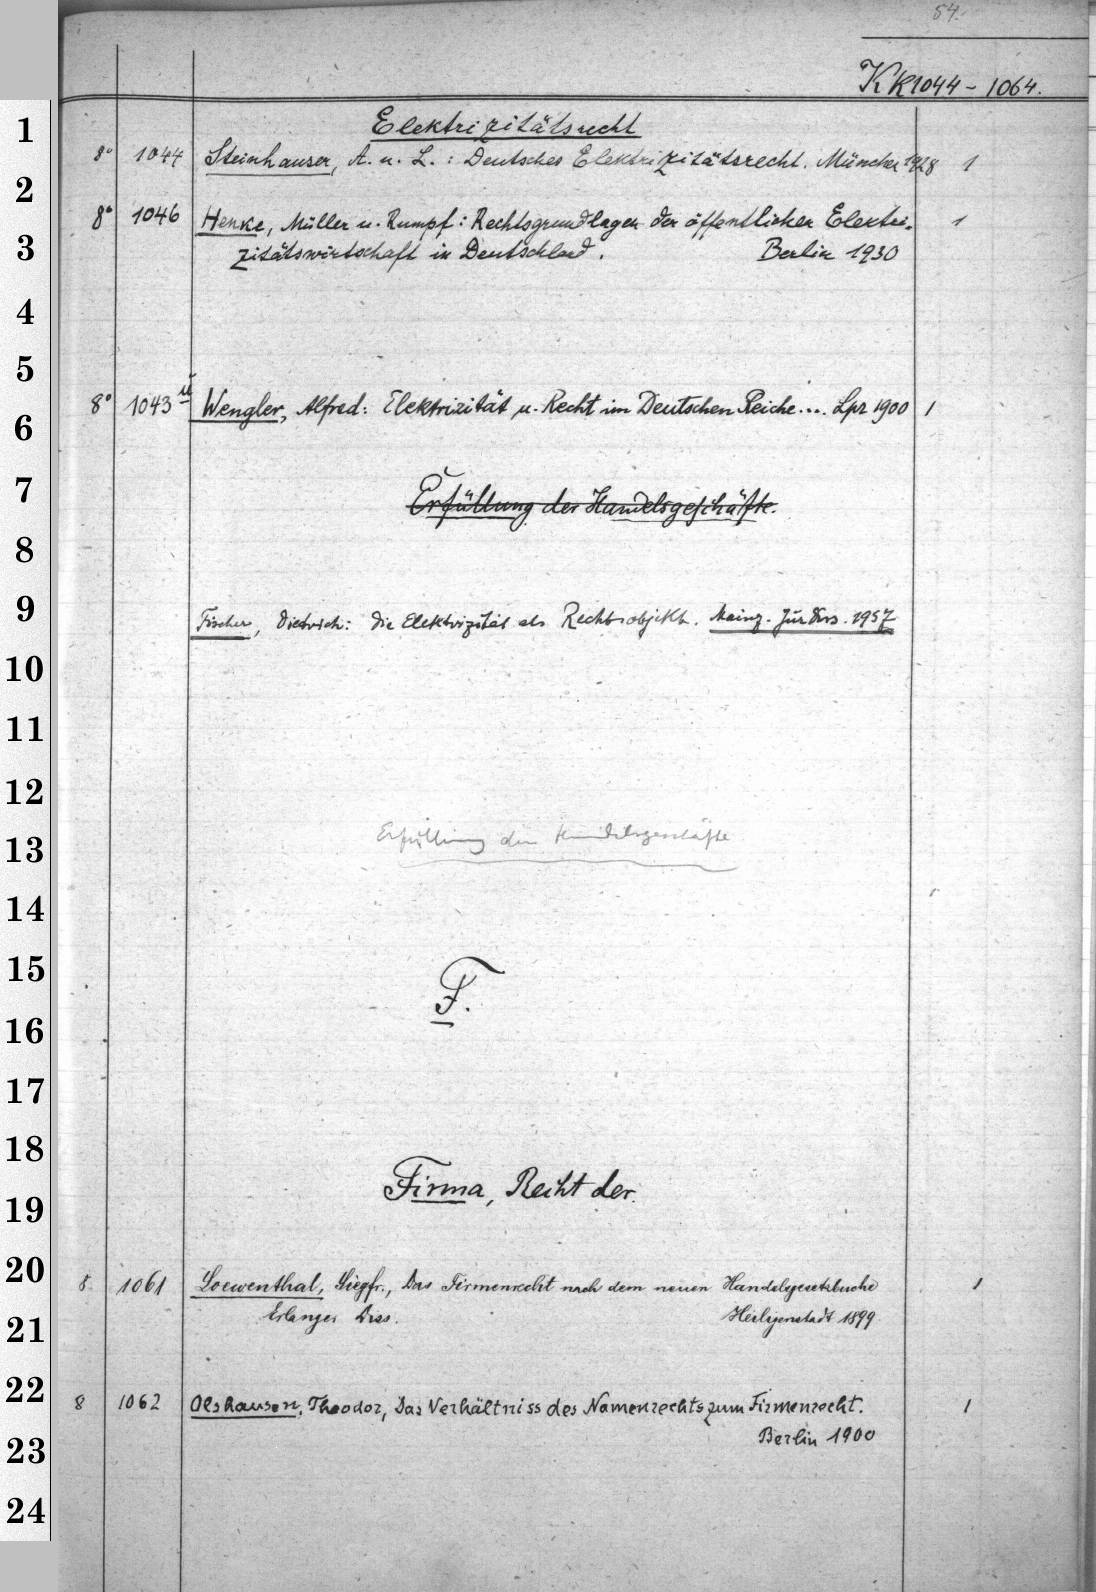 54.
KK 1044 - 1064.
Elektrizitätsrecht
8° 1044 Steinhauser, A. u. L. : Deutsches Elektrizitätsrecht. München 1928 1
8° 1046 Henke, Müller u. Rumpf: Rechtsgrundlagen der öffentlichen Elektri-
zitätswirtschaft in Deutschland. Berlin 1930
1
8° 1043 u Wengler, Alfred: Elektrizität u. Recht im Deutschen Reiche.... Lpz 1900 1
Erfüllung der Handelsgeschäfte.
Fischer, Dietrich: Die Elektrizität als Rechtsobjekt. Mainz. Jur Diss. 1957
Erfüllung der Handelsgeschäfte
F.
Firma, Recht der.
8 1061 Loewenthal, Siegfr., Das Firmenrecht nach dem neuen Handelsgesetzbuche 1
Erlanger Diss. Heiligenstadt 1899
8 1062 Olshausen, Theodor, Das Verhältniss des Namenrechts zum Firmenrecht. 1
Berlin 1900
1
2
3
4
5
6
7
8
9
10
11
12
13
14
15
16
17
18
19
20
21
22
23
24